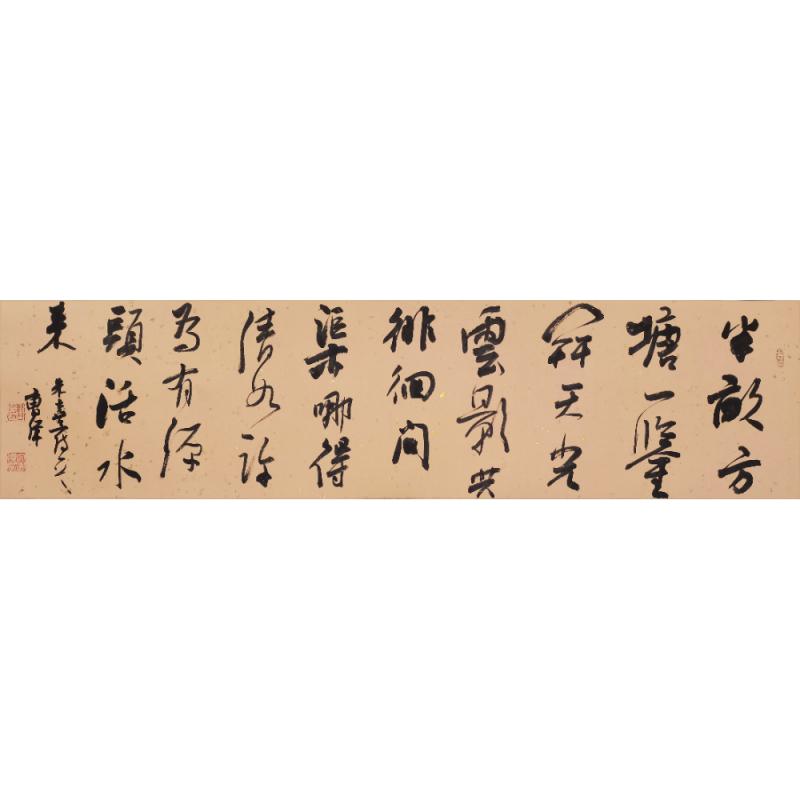 半畝方
塘一鑒
開天光
雲影共
徘徊問
渠哪得
清如許
為有源
頭活水
來
朱熹詩一首
曹